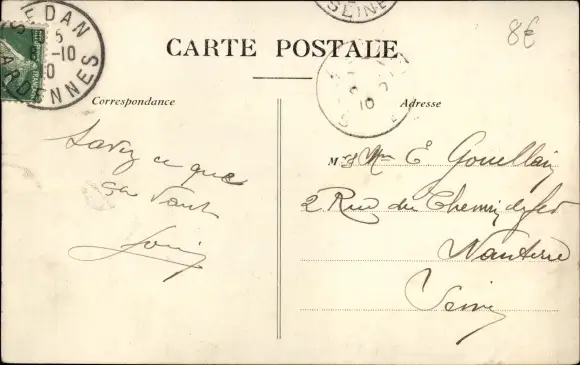 SEDAN
5
-10
10
ARDENNES
SEINE
8€
CARTE POSTALE
10
Correspondance
Adresse
Savez ce que
ça vaut
Louis
M Mme E Gouellain
2 Rue du Chemin de fer
Nanterre
Seine